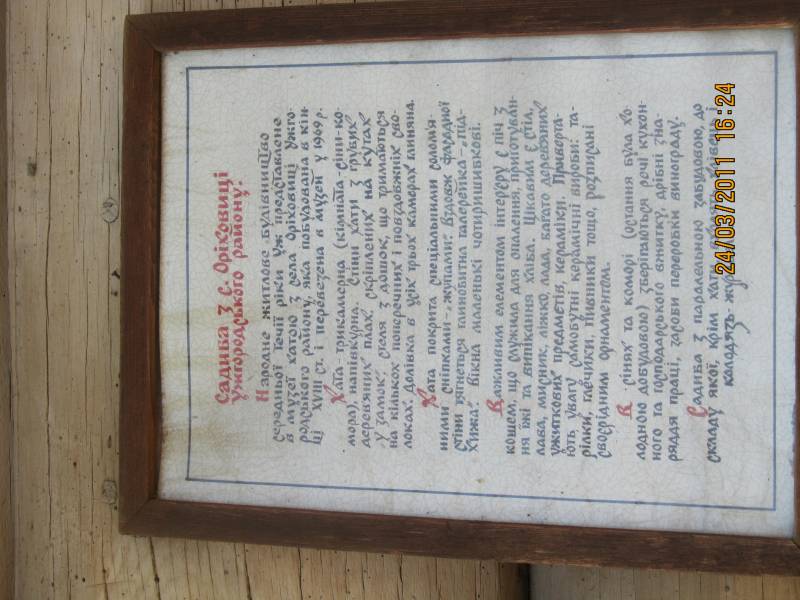 Садиба з с. Оріховиці
Ужгородського району.
Народне житлове будівництво
середньої течії ріки Уж представлено
в музеї хатою з села Оріховиці Ужго-
родського району, яка побудована в кін-
ці XVIII ст. і перевезена в музей у 1969 р.
Хата - трикамерна (кімната-сіни-ко-
мора), напівкурна, стіни хати з грубих
деревяних плах, скріплених на кутах
"у замок". Стеля з дошок, що тримаються
на кількох поперечних і повздовжніх сво-
локах. Долівка в усіх трьох камерах глиняна.
Хата покрита спеціальними солом'я-
ними сніпками-"жупами". Вздовж фасадної
стіни тягнеться галерейка-"під-
хижа". Вікна маленькі чотиришибкові.
Важливим елементом інтер'єру є піч з
кошем, що служила для опалення, приготуван-
ня їжі та випікання хліба. Цікавим є стіл,
лава, мисник, ліжко, лада, багато деревяних
ужиткових предметів, кераміки. Приверта-
ють увагу самобутні керамічні вироби: та-
рілки, глечики, пивники тощо, розписані
своєрідним орнаментом.
В сінях та коморі (остання була хо-
лодною добудовою) зберігаються речі кухон-
ного та господарського вжитку, дрібні зна-
ряддя праці, засоби переробки винограду.
Садиба з паралельною забудовою, до
складу якої, крім хати входять хлівець і
колодязь-жур
24/03/2011 16:24